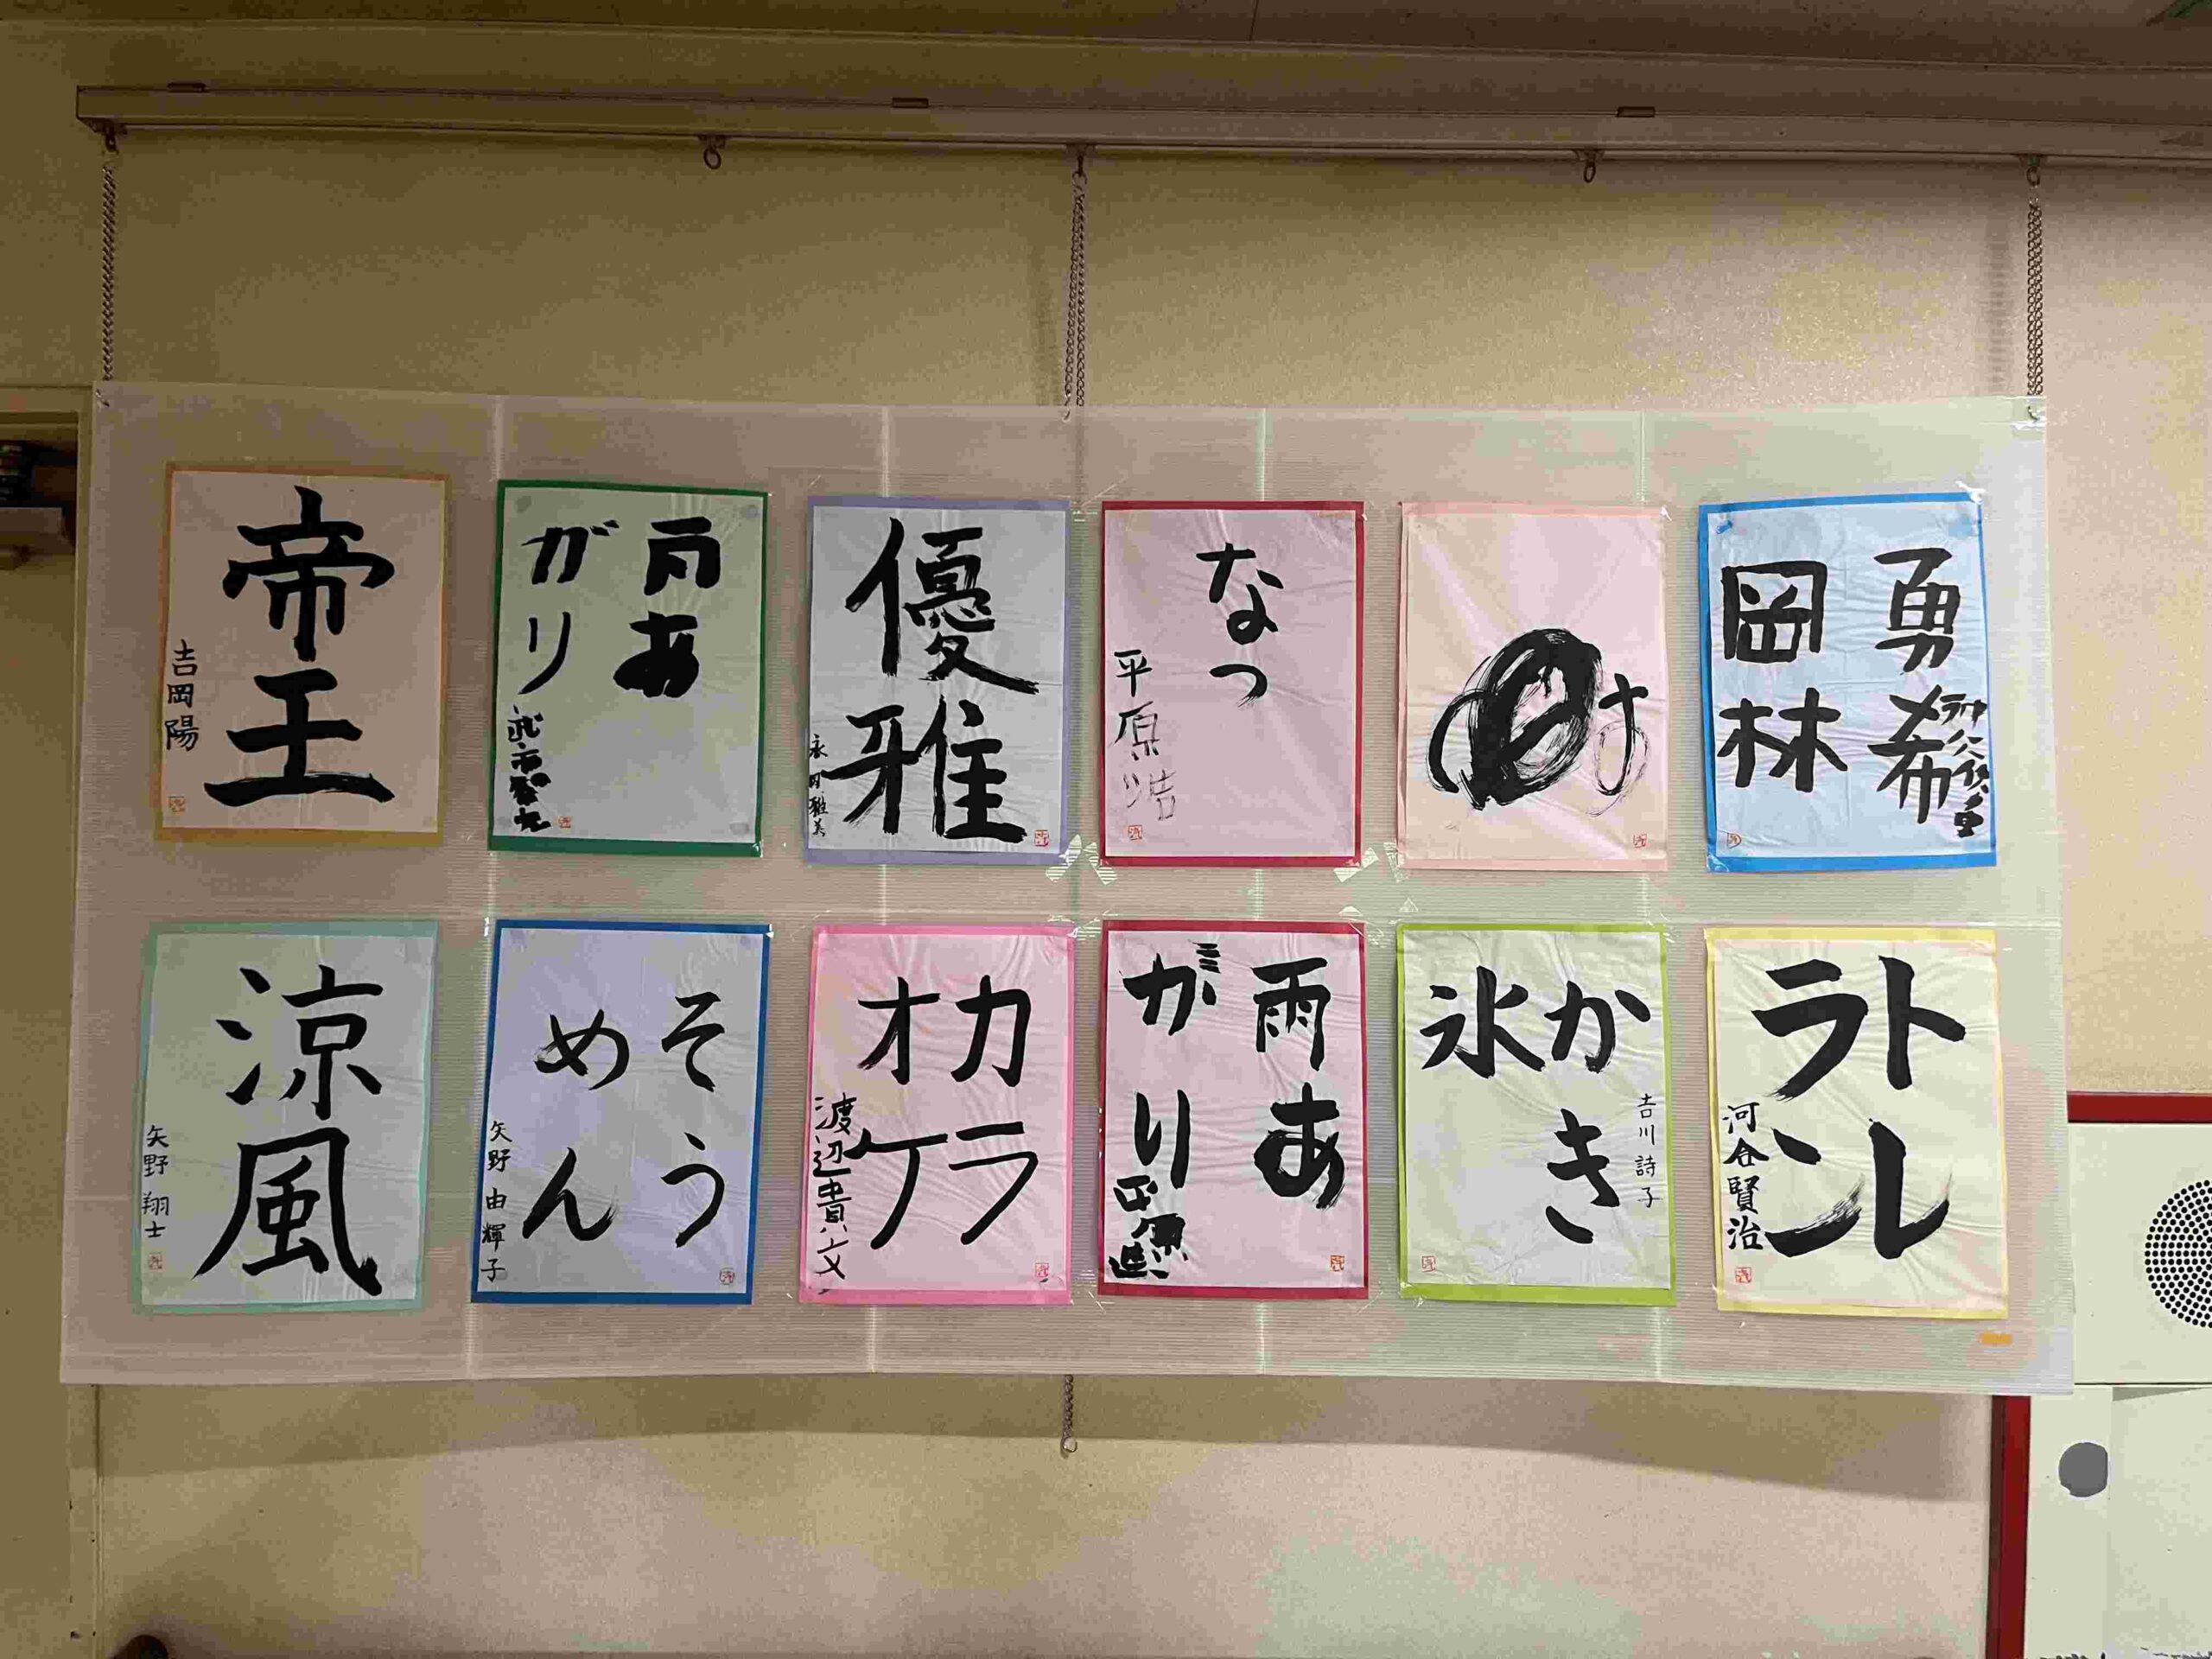 帝王
吉岡陽
雨あ
がり
優雅
なつ
平原浩
勇希
岡林
涼風
矢野翔士
そう
めん
矢野由輝子
カラ
オケ
渡辺貴文
雨あ
がり
かき
氷
吉川詩子
トル
ラン
河合賢治